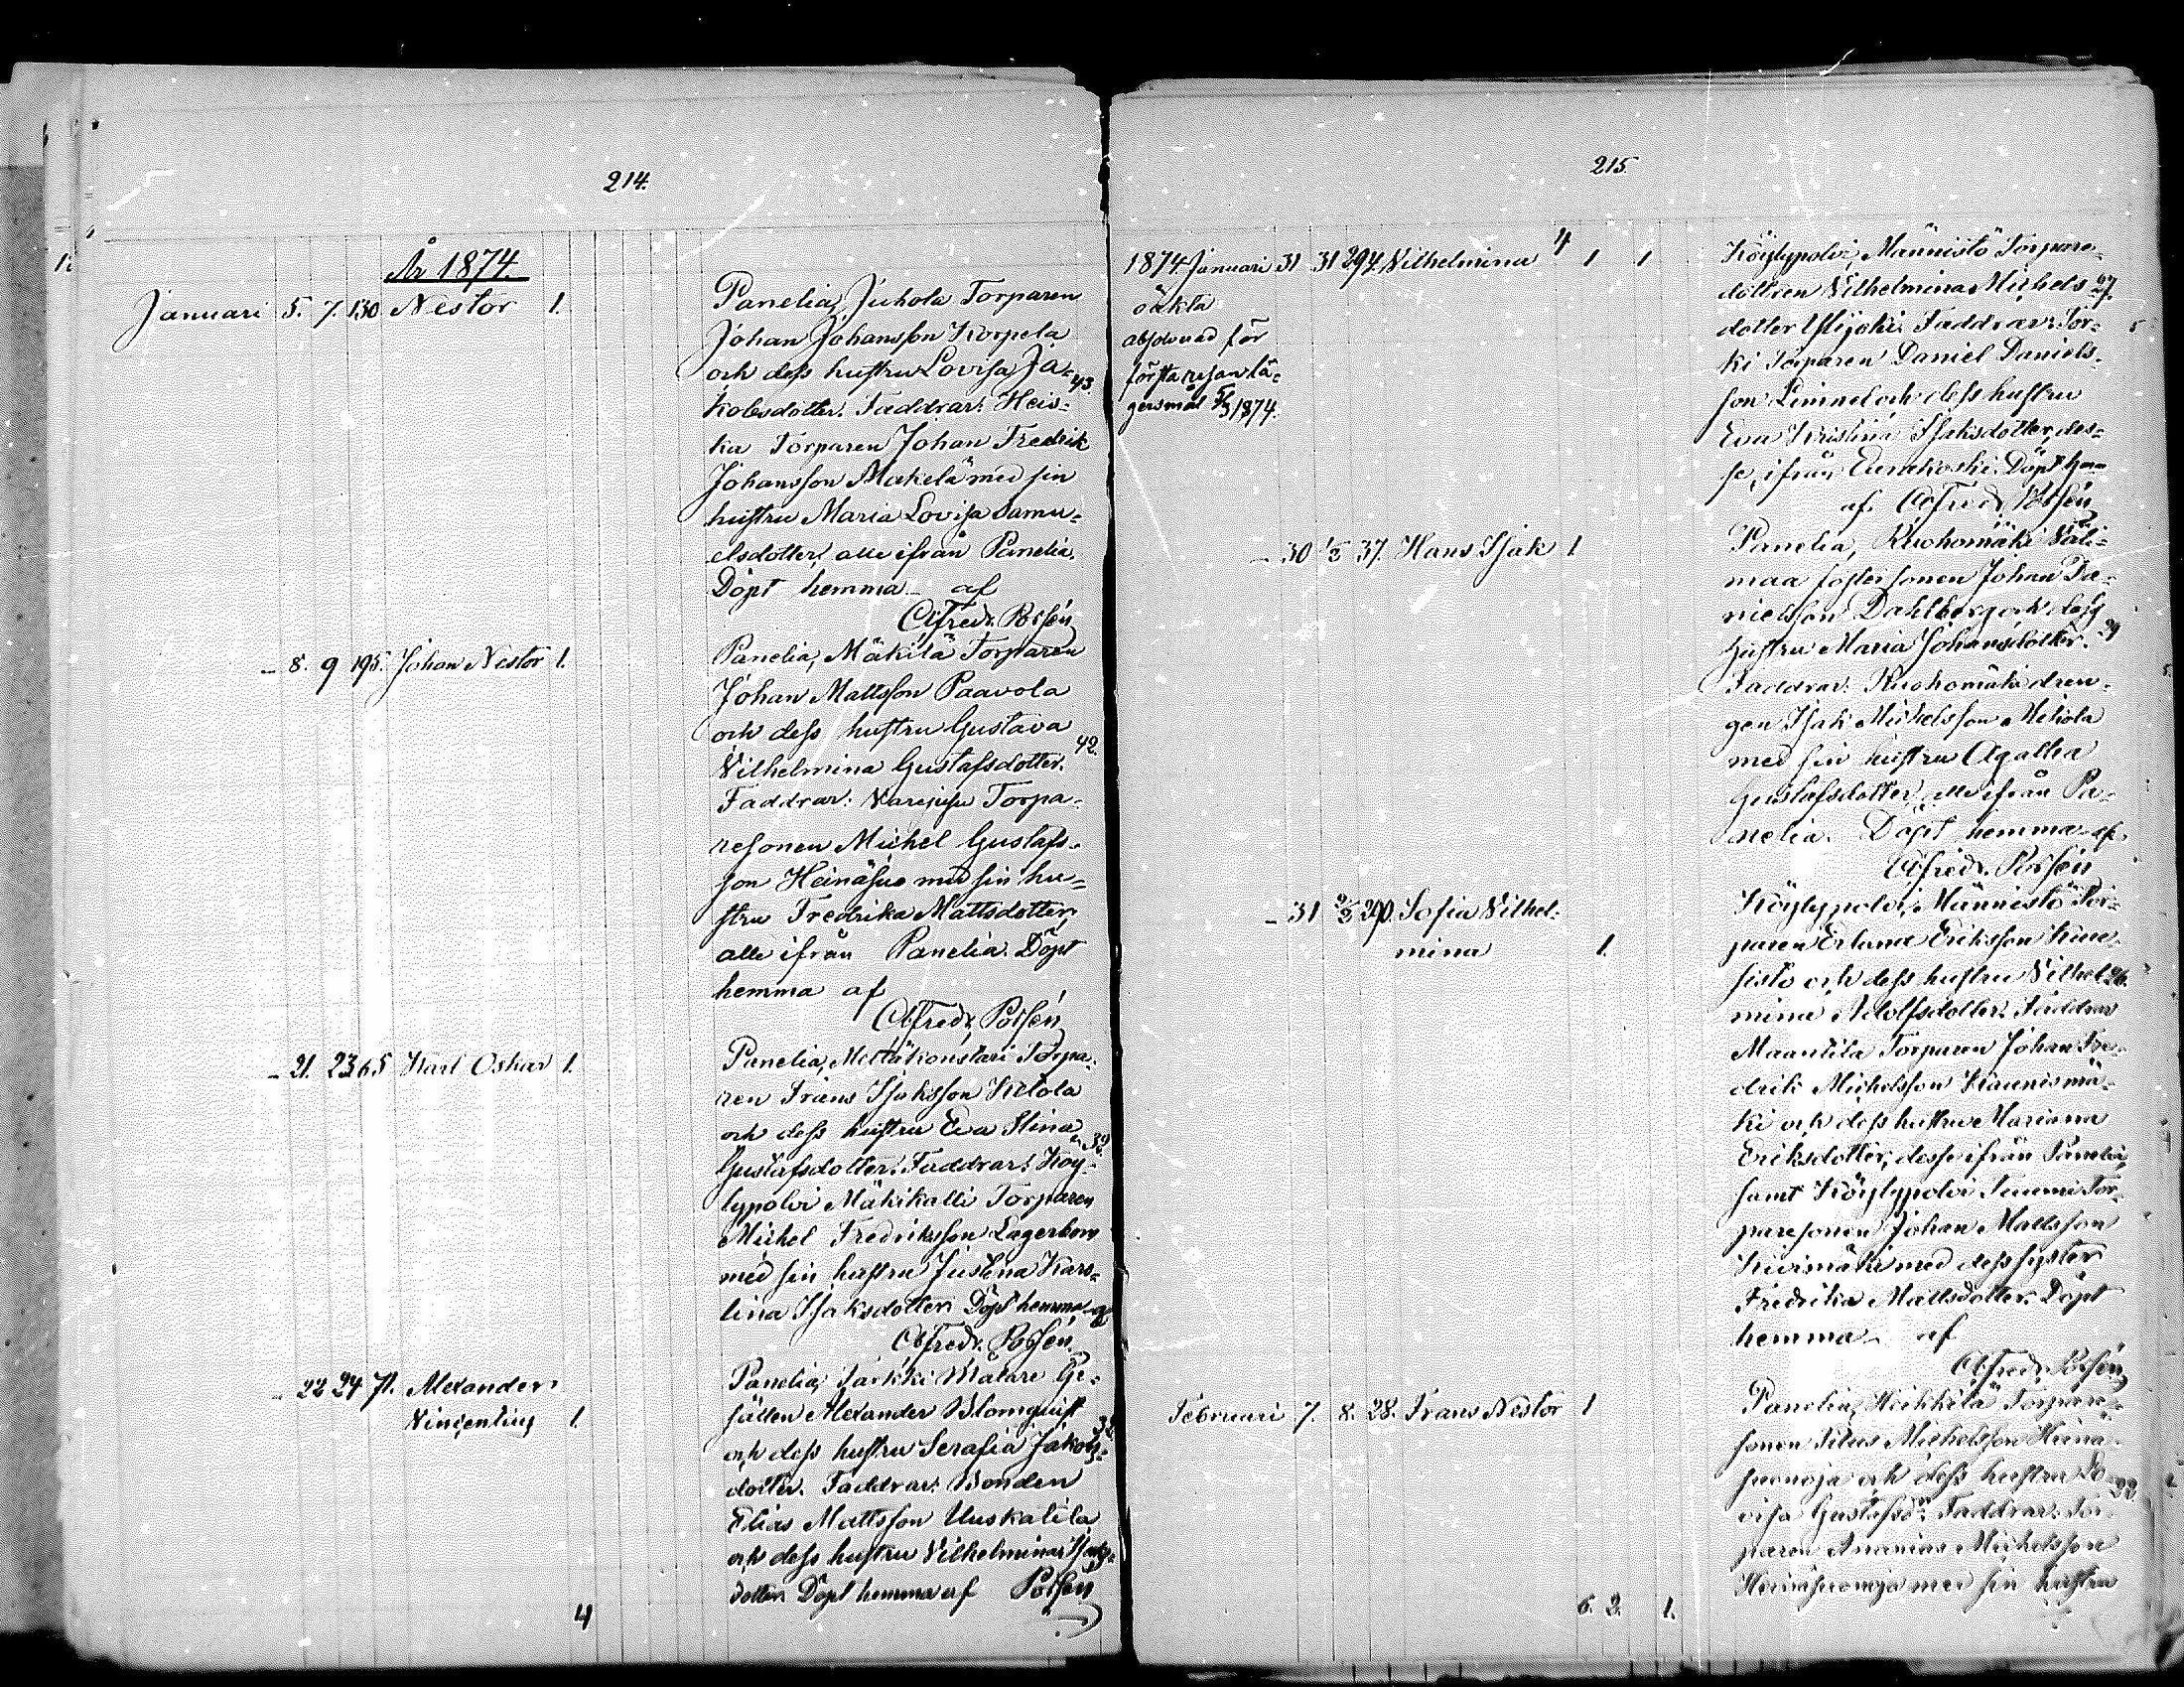 214.
År 1874.
Januari 5. 7. 130 Nestor 1.
Panelia, Juhola Torparen
Johan Johansson Korpela
och dess hustru Lovisa Ja- 43.
kobsdotter. Faddrar: Heis-
ka Torparen Johan Fredrik
Johansson Makelä med sin
hustru Maria Lovisa Samu-
elsdotter, alle ifrån Panelia.
Döpt hemma af
Alfred Polsén
— 8. 9 195. Johan Nestor 1.
Panelia, Mäkilä Torparen
Johan Mattsson Paavola
och dess hustru Gustava 42.
Vilhelmina Gustafsdotter.
Faddrar: Torpa-
resonen Michel Gustafs-
son Heinäsuo med sin hu-
stru Fredrika Mattsdotter,
alle ifrån Panelia. Döpt
hemma af
Alfred Polsén
— 21. 23 65 Karl Oskar 1.
Panelia, Torpa-
ren Frans Isaksson Ketola
och dess hustru Eva Stina 32.
Gustafsdotter. Faddrar: Köy-
lypolvi Mäkikalli Torparen
Michel Fredriksson Lagerbom
med sin hustru Justina Karo-
lina Isaksdotter. Döpt hemma af
Alfred Polsén.
— 22 24 71. Alexander
Vincentius 1.
Panelia, Jaakki Målare Ge-
sällen Alexander Blomquist 38.
och dess hustru Serafia Jakobs-
dotter. Faddrar: Bonden
Elias Mattsson Uuskatila
och dess hustru Vilhelmina Isaks-
dotter. Döpt hemma af Polsén
4
215.
4
1874. Januari 31 31 294 Vilhelmina 1 1
oäkta
absolverad för
första resan lä-
gersmål 1874.
Köylypolvi, Männistö Torpare-
dottren Vilhelmina Michels- 27.
dotter Ylijoki. Faddrar: Tor-
ki Torparen Daniel Daniels-
son Limnel och dess hustru
Eva Kristina Isaksdotter, des-
se, ifrån Eurakoski. Döpt hem
af Alfred Polsén
— 30 1/2 37. Hans Isak 1.
Panelia, Ruohomäki Väli-
maa fostersonen Johan Da-
nielsson Dahlberg och dess
hustru Maria Johansdotter. 29
Faddrar: Ruohomäki dren-
gen Isak Michelsson Mekola
med sin hustru Agatha
Gustafsdotter, alle ifrån Pa-
nelia. Döpt hemma af
Alfred Polsén
— 31 2/2 290. Sofia Vilhel-
mina 1.
Köylypolvi, Männistö Tor-
paren Erland Eriksson Kuu-
sisto och dess hustru Vilhel- 26.
mina Adolfsdotter. Faddrar
Maantila Torparen Johan Fre-
drik Michelsson Kaunismä-
ki och dess hustru Marianna
Eriksdotter, desse ifrån Panelia,
samt Köylypolvi Tuomi Tor-
paresonen Johan Mattsson
Kivimäki med dess syster
Fredrika Mattsdotter. Döpt
hemma af
Alfred Polsén
Februari 7. 8. 28. Frans Nestor 1
Panelia, Heikkilä Torpare-
sonen Titus Michelsson Heinä-
suonoja och dess hustru Lo- 22.
visa Gustafsdr. Faddrar: Tor-
paren Ananias Michelsson
Heinäsuonoja med sin hustru
6. 2. 1.